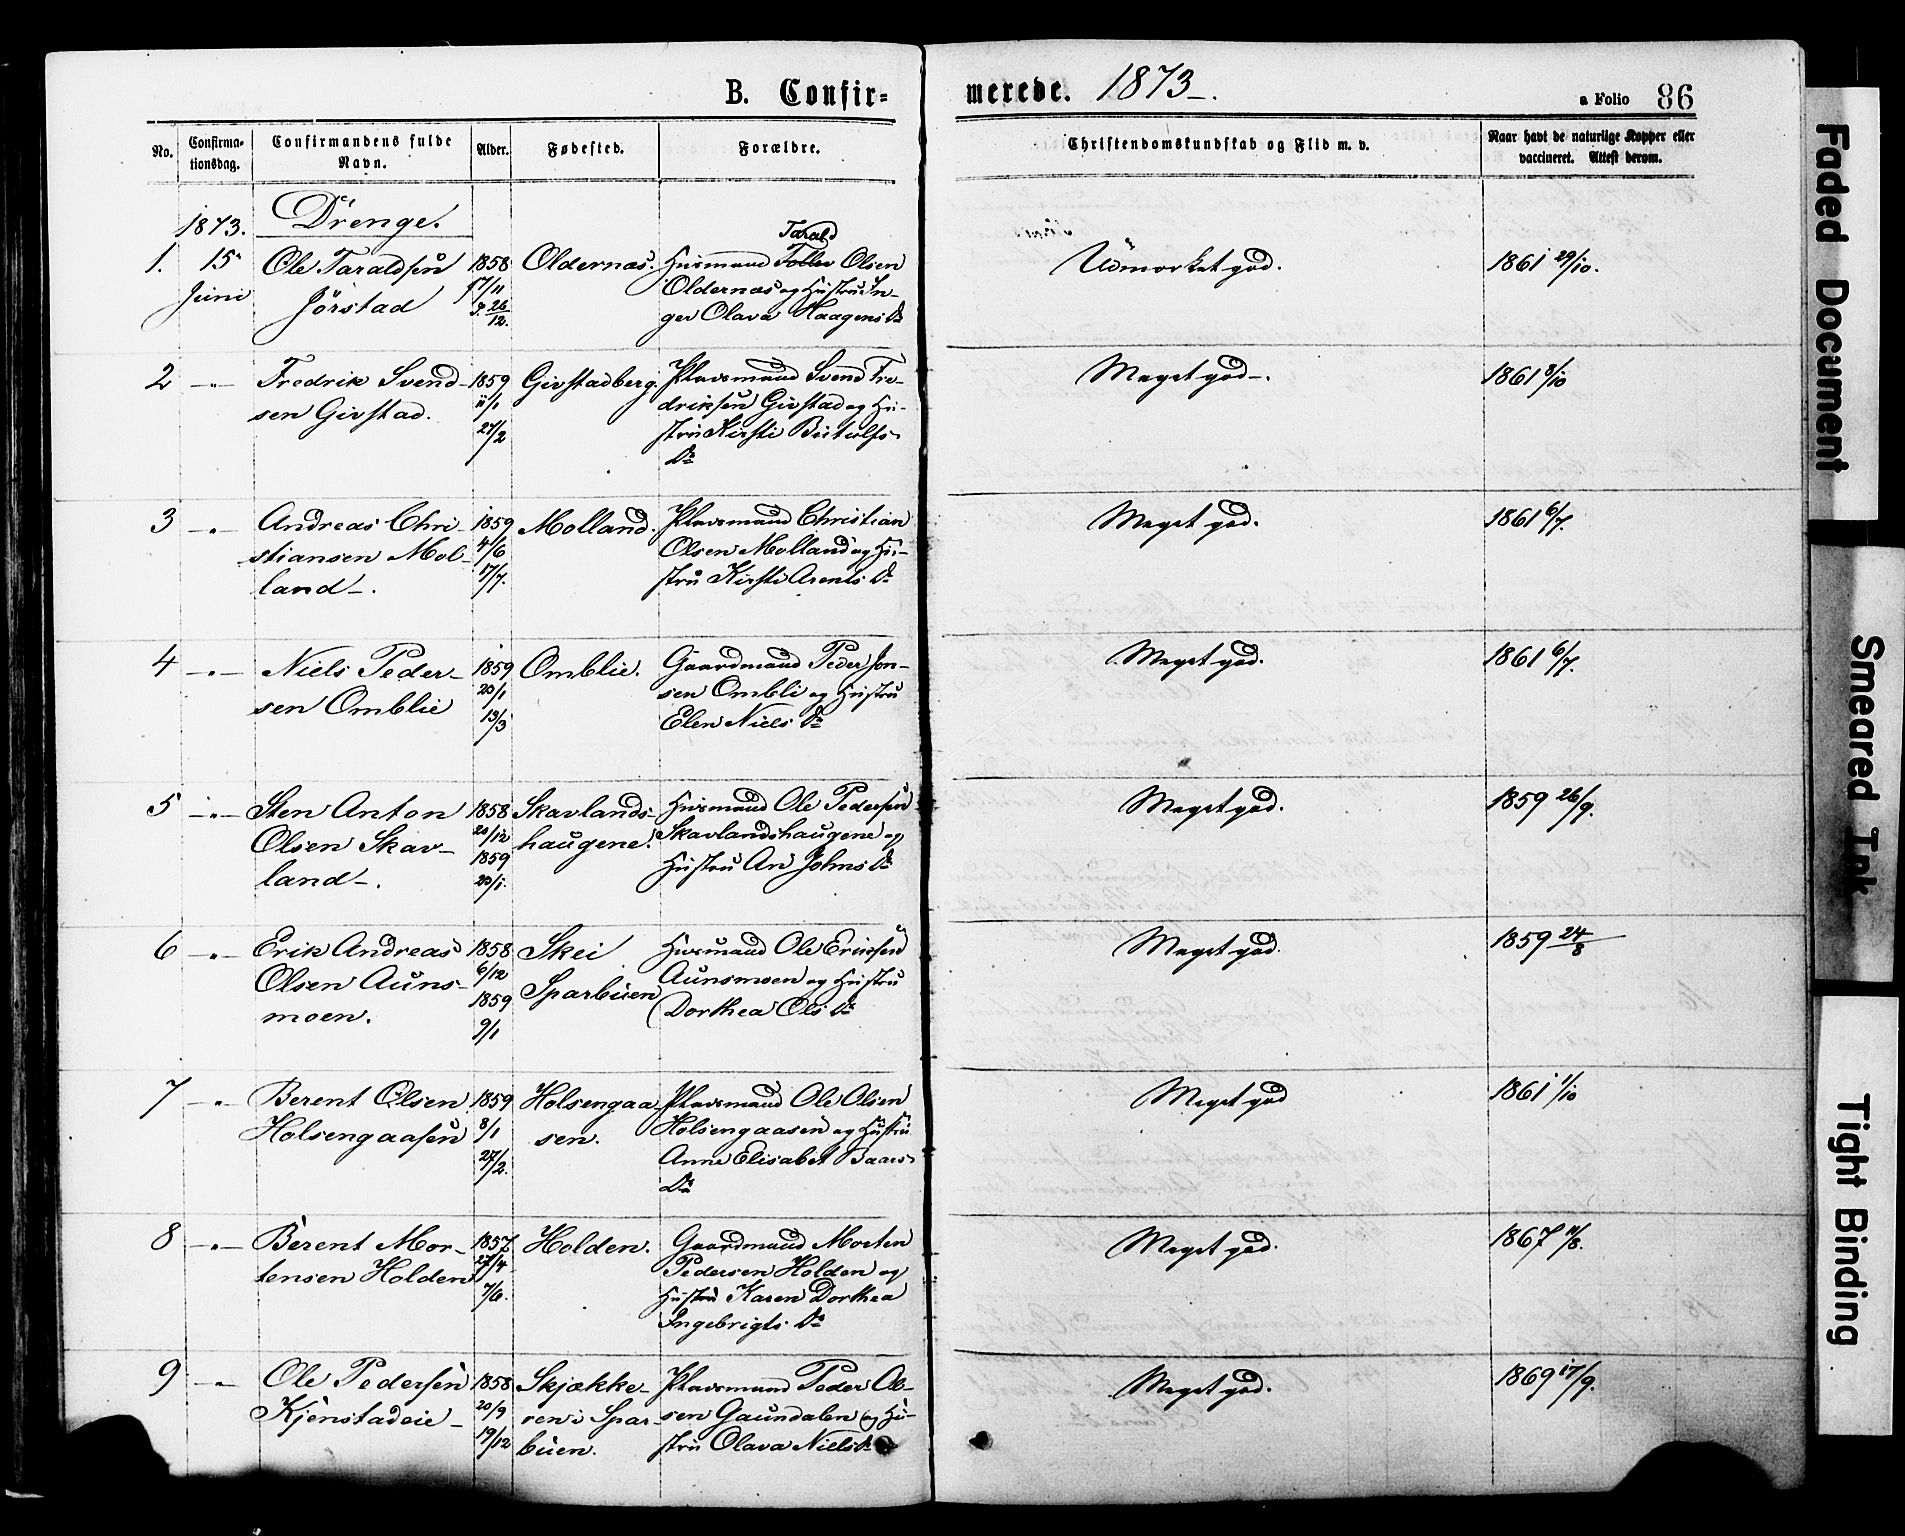 B. Confir=
merede. 1873.
a Folio 86
No.
Confirma-
tionsdag.
Confirmandens fulde
Navn.
Alder.
Fødested.
Forældre.
Christendomskundskab og Flid m. v.
Naar havt de naturlige Kopper eller
vaccineret. Attest derom.
1873. Drenge.
1. 15 Juni
Ole Taraldsen
Jörstad
1858
17/11
26/12.
Oldernæs.
Tarald
Husmand Olsen
Oldernæs og Hustru In-
ger Olava Haagens Dr
Udmærket god.
1861 29/10.
2 -"-
Fredrik Svend-
sen Givstad.
1859
11/1
27/2
Givstadberg.
Pladsmand Svend Fre-
driksen Givstad og Hu-
stru Kirsti Butulfs
Dr
Meget god.
1861 8/10
3 -"-
Andreas Chri-
stiansen Mol-
land.
1859
4/6
17/7.
Molland.
Pladsmand Christian
Olsen Molland og Hu-
stru Kirsti Arents Dr
Meget god.
1861 6/7.
4 -"-
Niels Peder-
sen Omblie
1859
20/1
13/3
Omblie.
Gaardmand Peder Jon-
sen Ombli og Hustru
Elen Niels Dr
Meget god.
1861 6/7.
5 -"-
Sten Anton
Olsen Skav-
land.
1858
20/12
1859
20/1.
Skavlands-
haugene.
Husmand Ole Pedersen
Skavlandshaugene og
Hustru An Johns Dr
Meget god.
1859 26/9.
6 -"-
Erik Andreas
Olsen Auns-
moen.
1858
6/12
1859
9/1
Skei
Sparbuen
Husmand Ole Eriksen
Aunsmoen og Hustru
Dorthea Ols Dr
Meget god.
1859 24/8
7 -"-
Berent Olsen
Holsengaasen
1859
8/1
27/2.
Holsengaa-
sen.
Pladsmand Ole Olsen
Holsengaasen og Hustru
Anne Elisabet Baars
Dr
Meget god
1861 1/10
8 -"-
Berent Mor-
tensen Holden
1857
27/4
7/6.
Holden.
Gaardmand Morten
Pedersen Holden og
Hustru Karen Dorthea
Ingebrigts Dr
Meget god.
1867 11/8.
9 -"-
Ole Pedersen
Kjenstadeie
1858
20/9
19/12
Skjække-
ren i Spar-
buen.
Pladsmand Peder Ol-
sen Gaundalen og Hu-
stru Olava Niels Dr
Meget god.
1869 17/9.
Faded Document
Smeared Ink
Tight Binding